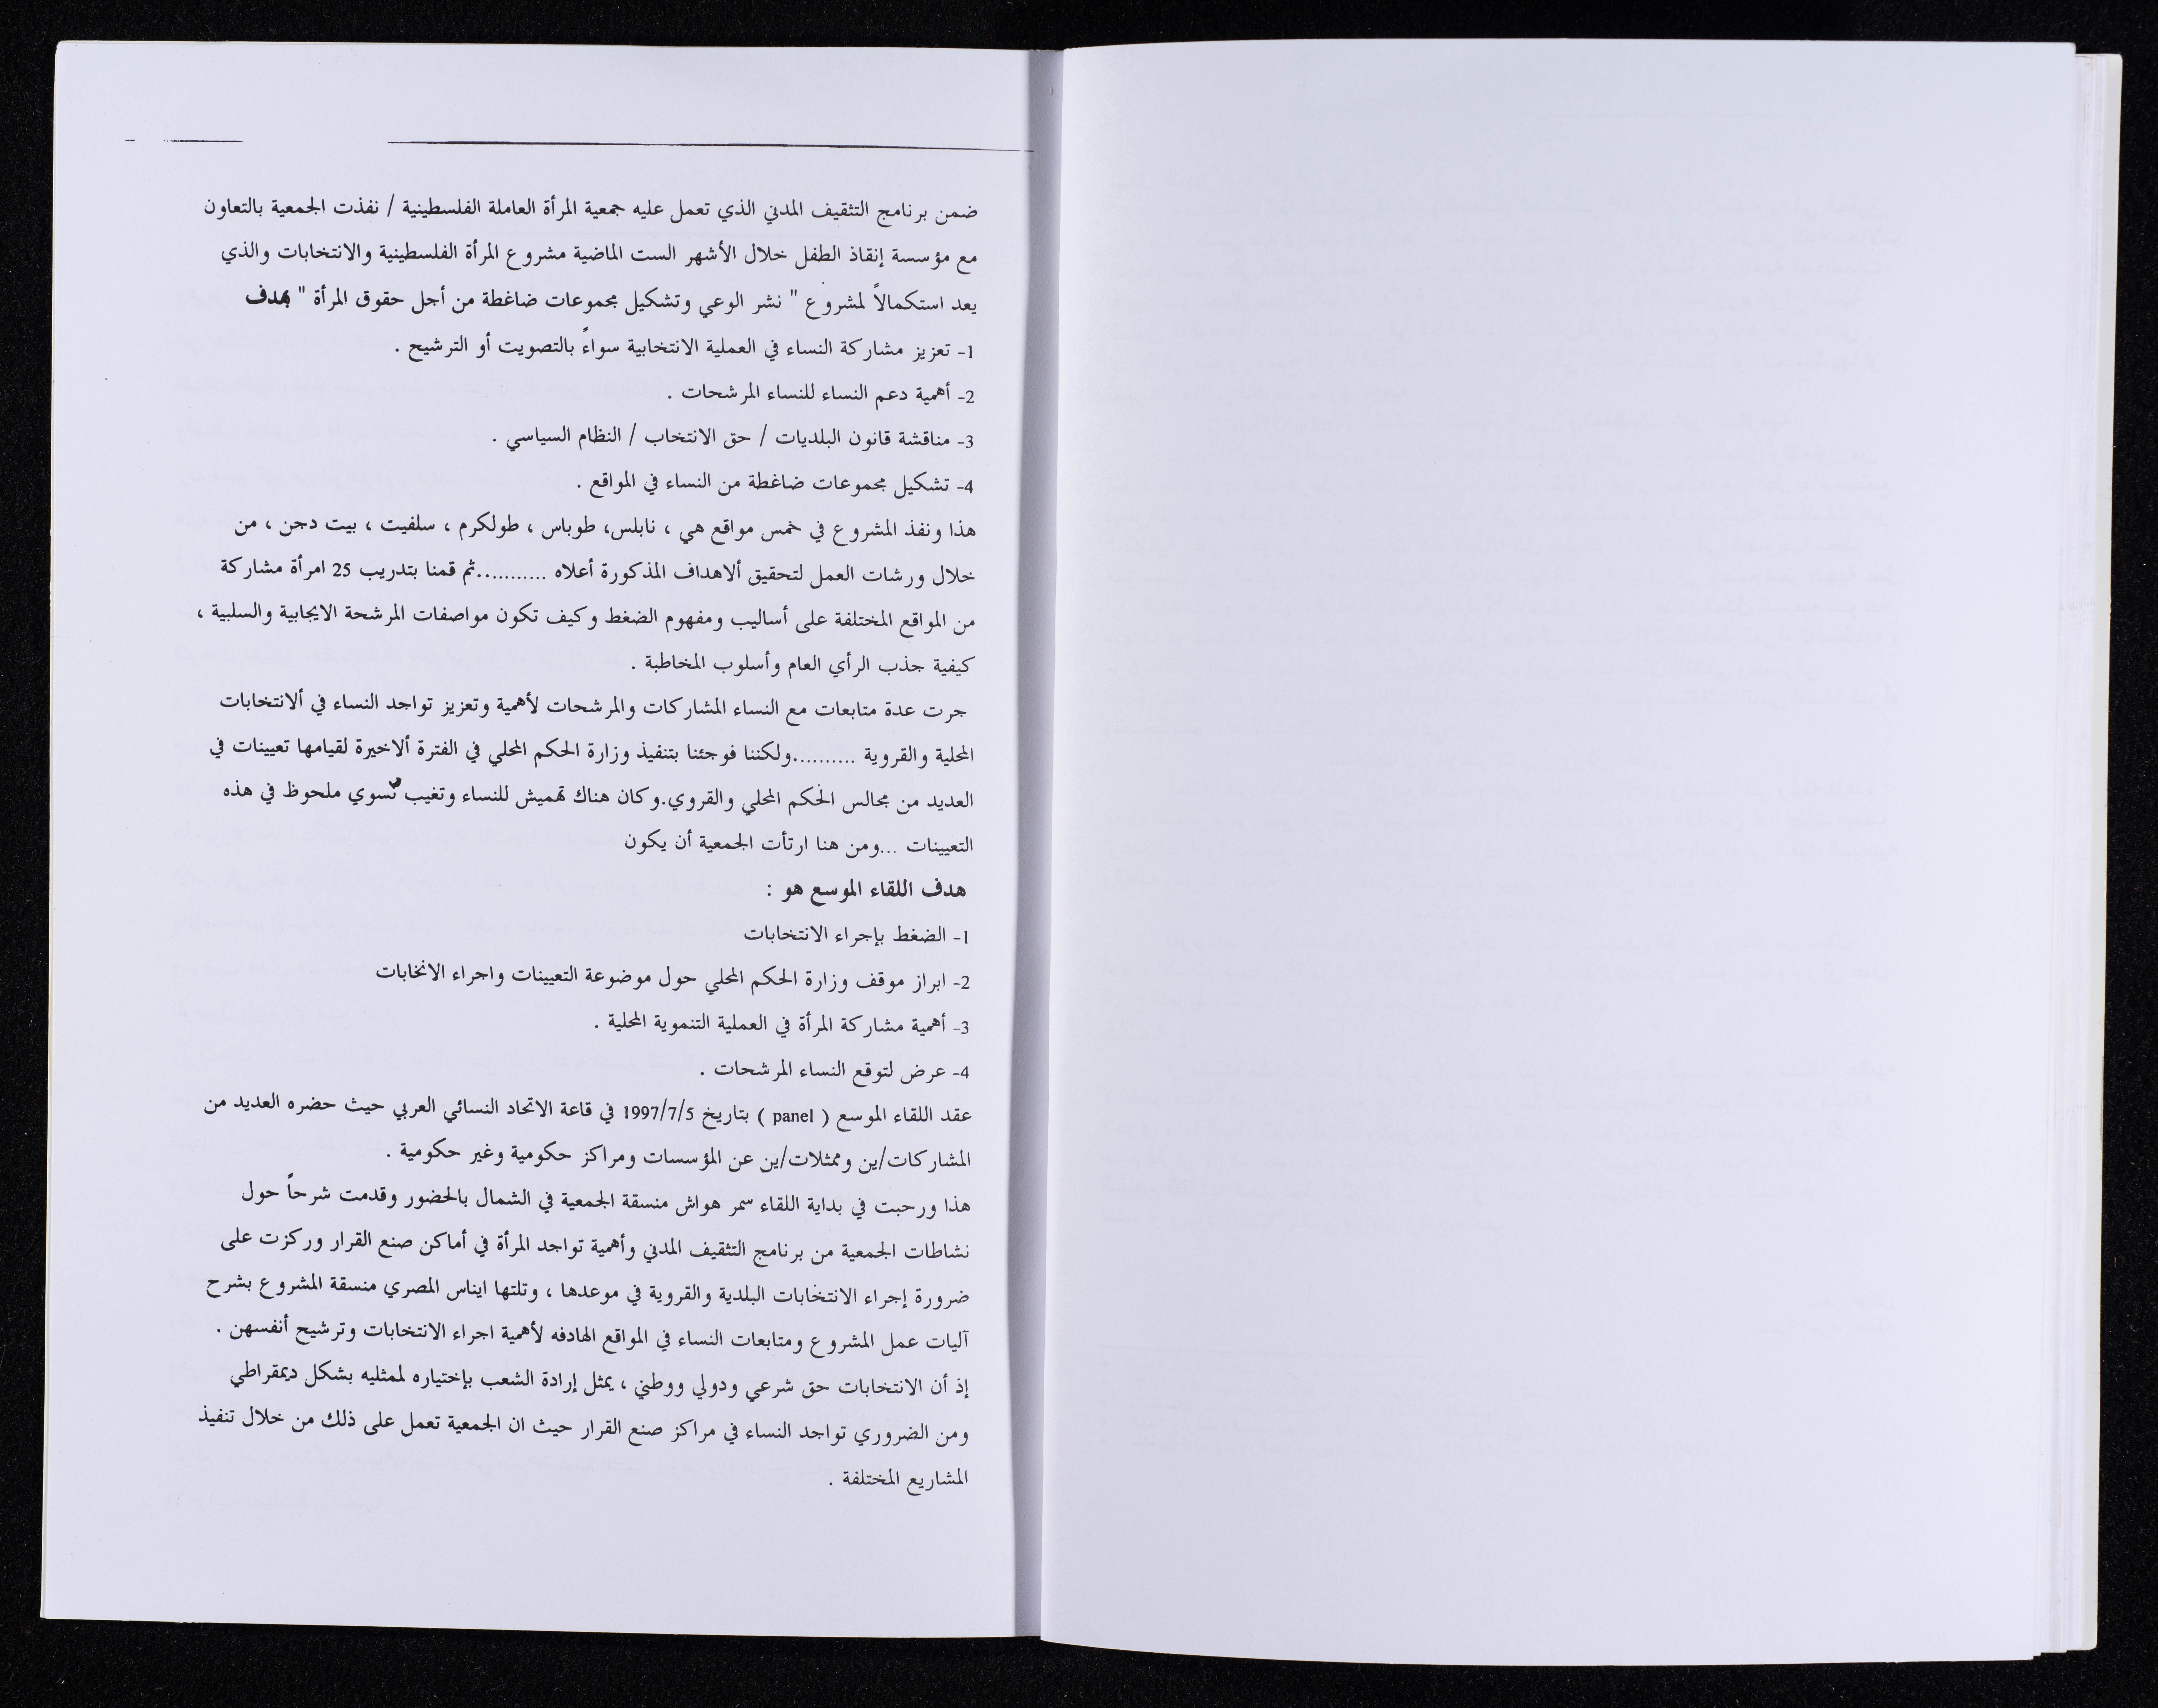 ضمن برنامج التثقيف المدني الذي تعمل عليه جمعية المرأة العاملة الفلسطينية / نفذت الجمعية بالتعاون
مع مؤسسة إنقاذ الطفل خلال الأشهر الست الماضية مشروع المرأة الفلسطينية والانتخابات والذي
يعد استكمالاً لمشروع " نشر الوعي وتشكيل مجموعات ضاغطة من أجل حقوق المرأة " بهدف
1- تعزيز مشاركة النساء في العملية الانتخابية سواءً بالتصويت أو الترشيح .
2- أهمية دعم النساء للنساء المرشحات .
3- مناقشة قانون البلديات / حق الانتخاب / النظام السياسي .
4- تشكيل مجموعات ضاغطة من النساء في المواقع .
هذا ونفذ المشروع في خمس مواقع هي ، نابلس، طوباس ، طولكرم ، سلفيت ، بيت دجن ، من
خلال ورشات العمل لتحقيق ألاهداف المذكورة أعلاه ...........ثم قمنا بتدريب 25 امرأة مشاركة
من المواقع المختلفة على أساليب ومفهوم الضغط وكيف تكون مواصفات المرشحة الايجابية والسلبية ،
كيفية جذب الرأي العام وأسلوب المخاطبة .
جرت عدة متابعات مع النساء المشاركات والمرشحات لأهمية وتعزيز تواجد النساء في ألانتخابات
المحلية والقروية ..........ولكننا فوجئنا بتنفيذ وزارة الحكم المحلي في الفترة ألاخيرة لقيامها تعيينات في
العديد من مجالس الحكم المحلي والقروي.وكان هناك تهميش للنساء وتغيب نسوي ملحوظ في هذه
التعيينات ...ومن هنا ارتأت الجمعية أن يكون
هدف اللقاء الموسع هو :
1- الضغط بإجراء الانتخابات
2- ابراز موقف وزارة الحكم المحلي حول موضوعة التعيينات واجراء الانخابات
3- أهمية مشاركة المرأة في العملية التنموية المحلية .
4- عرض لتوقع النساء المرشحات .
عقد اللقاء الموسع ( panel ) بتاريخ 1997/7/5 في قاعة الاتحاد النسائي العربي حيث حضره العديد من
المشاركات/ين وممثلات/ين عن المؤسسات ومراكز حكومية وغير حكومية .
هذا ورحبت في بداية اللقاء سمر هواش منسقة الجمعية في الشمال بالحضور وقدمت شرحاً حول
نشاطات الجمعية من برنامج التثقيف المدني وأهمية تواجد المرأة في أماكن صنع القرار وركزت على
ضرورة إجراء الانتخابات البلدية والقروية في موعدها ، وتلتها ايناس المصري منسقة المشروع بشرح
آليات عمل المشروع ومتابعات النساء في المواقع الهادفه لأهمية اجراء الانتخابات وترشيح أنفسهن .
إذ أن الانتخابات حق شرعي ودولي ووطني ، يمثل إرادة الشعب بإختياره لممثليه بشكل ديمقراطي
ومن الضروري تواجد النساء في مراكز صنع القرار حيث ان الجمعية تعمل على ذلك من خلال تنفيذ
المشاريع المختلفة .